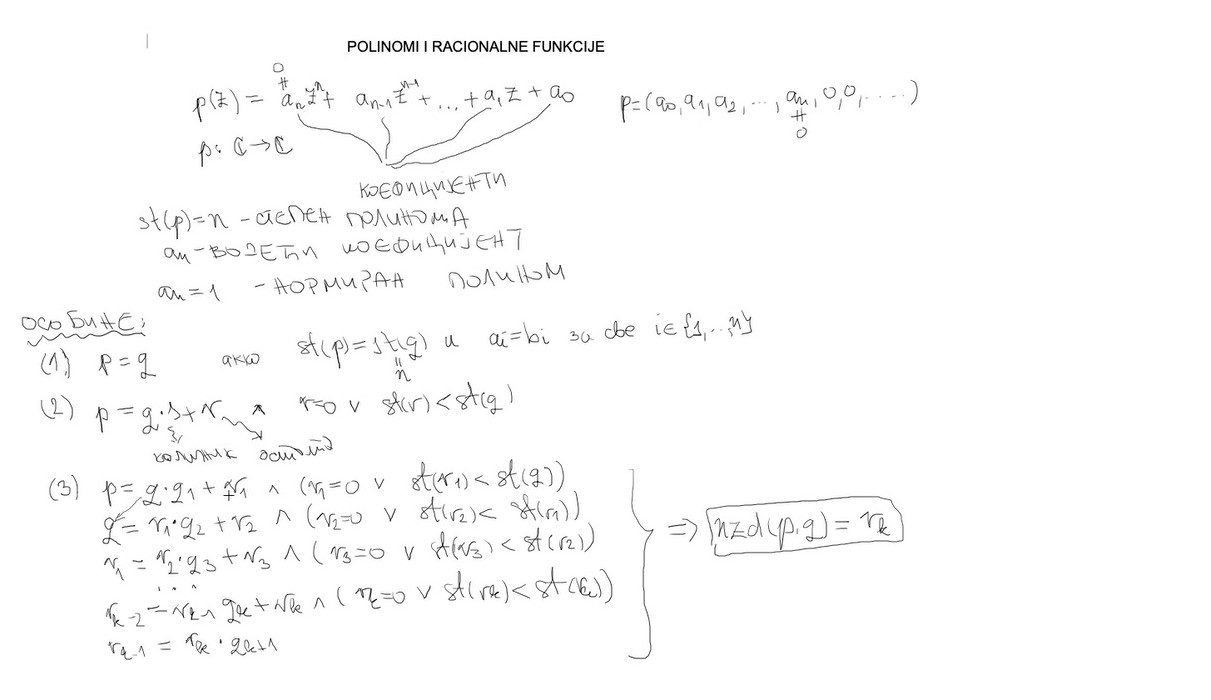 POLINOMI I RACIONALNE FUNKCIJE
0
≠
p(z) = aₙzⁿ + aₙ₋₁zⁿ⁻¹ + ... + a₁z + a₀ p=(a₀,a₁,a₂, ..., aₙ,0,0,.....)
≠
0
p: ℂ→ℂ
КОЕФИЦИЈЕНТИ
st(p)=n - СТЕПЕН ПОЛИНОМА
aₙ - ВОДЕЋИ КОЕФИЦИЈЕНТ
aₙ=1 - НОРМИРАН ПОЛИНОМ
ОСОБИНЕ:
(1) p=q акко st(p)=st(q) и aᵢ=bᵢ за све i∈{1,..,n}
=
n
(2) p=q·s+r ∧ r=0 ∨ st(r)<st(q)
количник остатак
(3) p=q·q₁+r₁ ∧ (r₁=0 ∨ st(r₁)<st(q))
q=r₁·q₂+r₂ ∧ (r₂=0 ∨ st(r₂)<st(r₁))
r₁=r₂·q₃+r₃ ∧ (r₃=0 ∨ st(r₃)<st(r₂))
⇒ nzd(p,q)=rₖ
...
rₖ₋₂=rₖ₋₁ qₖ+rₖ ∧ (rₖ=0 ∨ st(rₖ)<st(rₖ))
rₖ₋₁=rₖ·qₖ₊₁